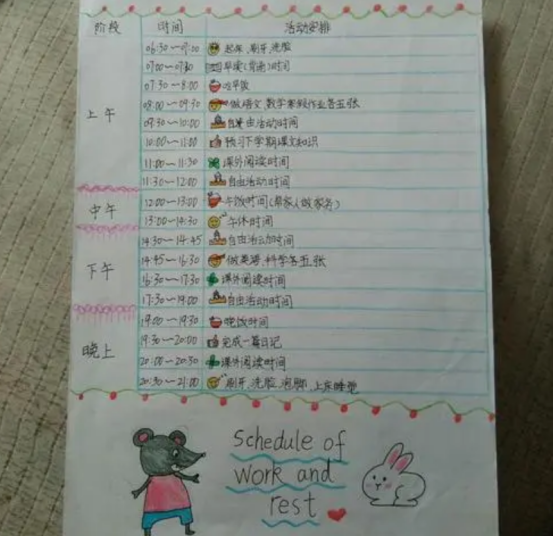 阶段 时间 活动安排
06:30~07:00 起床、刷牙、洗脸
07:00~07:30 早读(背诵)时间
07:30~8:00 吃早饭
上午 08:00~09:30 做语文、数学寒假作业各五张
09:30~10:00 自由活动时间
10:00~11:00 预习下学期课文知识
11:00~11:30 课外阅读时间
11:30~12:00 自由活动时间
中午 12:00~13:00 午饭时间(帮家人做家务)
13:00~14:30 午休时间
14:30~14:45 自由活动时间
下午 14:45~16:30 做英语、科学各五张
16:30~17:30 课外阅读时间
17:30~19:00 自由活动时间
19:00~19:30 晚饭时间
晚上 19:30~20:00 完成一篇日记
20:00~20:30 课外阅读时间
20:30~21:00 刷牙、洗脸、泡脚、上床睡觉
Schedule of
work and
rest